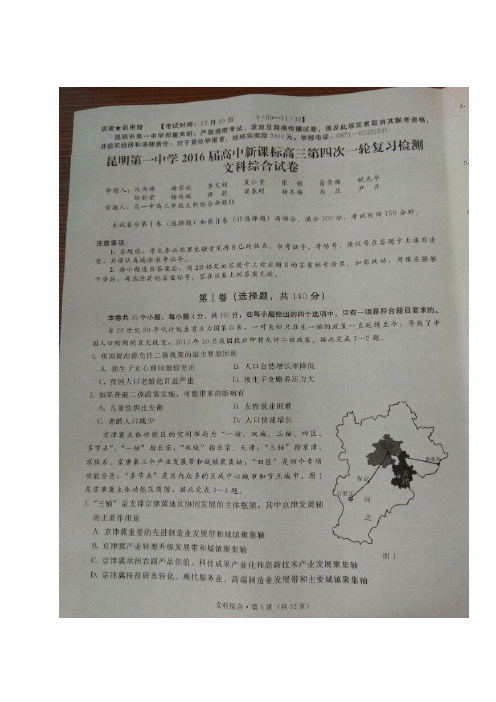 机密★启用前 【考试时间：12月29日 9:00—11:30】
昆明市第一中学郑重声明：严禁提前考试、发放及网络传播试卷，违反此规定者取消其联考资格，
并追究经济和法律责任；对于首位举报者，经核实奖励2000元。举报电话：0871—
昆明第一中学2016届高中新课标高三第四次一轮复习检测
文科综合试卷
命题人：
审题人：昆一中高三年级文科综合命题组
本试卷分第Ⅰ卷（选择题）和第Ⅱ卷（非选择题）两部分。满分300分，考试时间150分钟。
注意事项：
1. 答题前，考生务必用黑色碳素笔将自己的姓名、准考证号、考场号、座位号在答题卡上填写清
楚，并请认真核准
2. 每小题选出答案后，用2B铅笔把答题卡上对应题目的答案标号涂黑，如需改动，用橡皮擦擦
干净后，再选涂其他答案标号。答在试卷上的答案无效。
第Ⅰ卷（选择题，共140分）
本卷共35个小题，每小题4分，共140分，在每小题给出的四个选项中，只有一项是符合题目要求的。
自20世纪80年代计划生育立为国策以来，一对夫妇只准生一胎的政策一直延续至今，导致了中
国人口结构的巨大改变，2015年10月我国提出即将允许二孩政策。据此完成1~2题。
1. 我国提出将允许二孩政策的最主要原因是
A. 独生子女心理问题较突出 B. 人口自然增长率降低
C. 我国人口老龄化日益严重 D. 独生子女赡养压力大
2. 如果普遍二孩政策实施，可能带来的影响有
A. 儿童性别比失衡 B. 女性就业困难
C. 老龄人口减少 D. 人口快速增长
京津冀主体功能区的空间布局为“一核、双城、三轴、四区、
多节点”。“一核”指北京；“双城”指北京、天津；“三轴”指京津、
京保石、京唐秦三个产业发展带和城镇聚集轴；“四区”是四个专项
功能分区；“多节点”是区内众多的区域中心城市和节点城市。图1
是京津冀主体功能区简图。据此完成3~4题。
3. “三轴”是支撑京津冀地区协同发展的主体框架，其中京津发展轴
的主要作用是
A. 京津冀重要的先进制造业发展带和城镇聚集轴
B. 京津冀产业转型升级发展带和城镇聚集轴
C. 京津冀承担农副产品供给、科技成果产业化和高新技术产业发展聚集轴
D. 京津冀科技研发转化、现代服务业、高端制造业发展带和主要城镇聚集轴
保定
石家庄
秦皇岛
河
北
图1
文科综合·第1页（共12页）